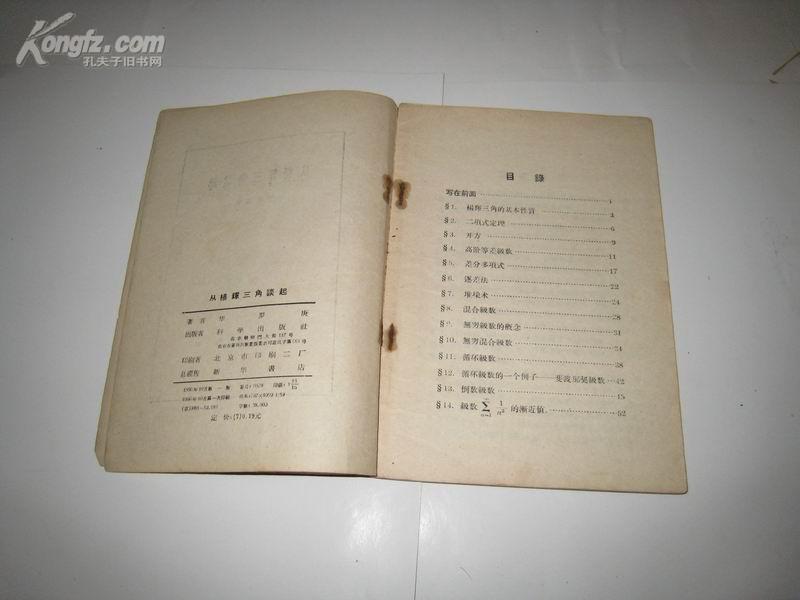 Kongfz.com
孔夫子旧书网
从楊輝三角談起
著者 华 罗 庚
出版者 科学出版社
印刷者 北京市印刷二厂
总經售 新华書店
定价:(7)0.19元
目錄
写在前面 1
§1. 楊輝三角的基本性質
§2. 二項式定理 6
§3. 开方 9
§4. 高阶等差級数 11
§5. 差分多項式 17
§6. 逐差法 22
§7. 堆垜术 24
§8. 混合級数 28
§9. 無穷級数的概念 31
§10. 無穷混合級数 34
§11. 循环級数 38
§12. 循环級数的一个例子——斐波那契級数 42
§13. 倒数級数
§14. 級数 ∞∑n=1 1/n² 的漸近値 52